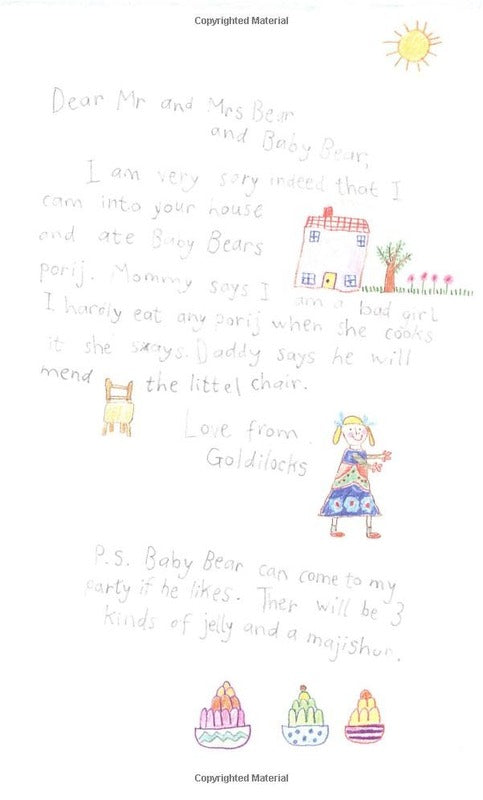 Copyrighted Material
Dear Mr and Mrs Bear
and Baby Bear,
I am very sory indeed that I
cam into your house
and ate Baby Bears
porij. Mommy says I am a bad girl
I hardly eat any porij when she cooks
it she says. Daddy says he will
mend the littel chair.
Love from
Goldilocks
P.S. Baby Bear can come to my
party if he likes. Ther will be 3
kinds of jelly and a majishun.
Copyrighted Material